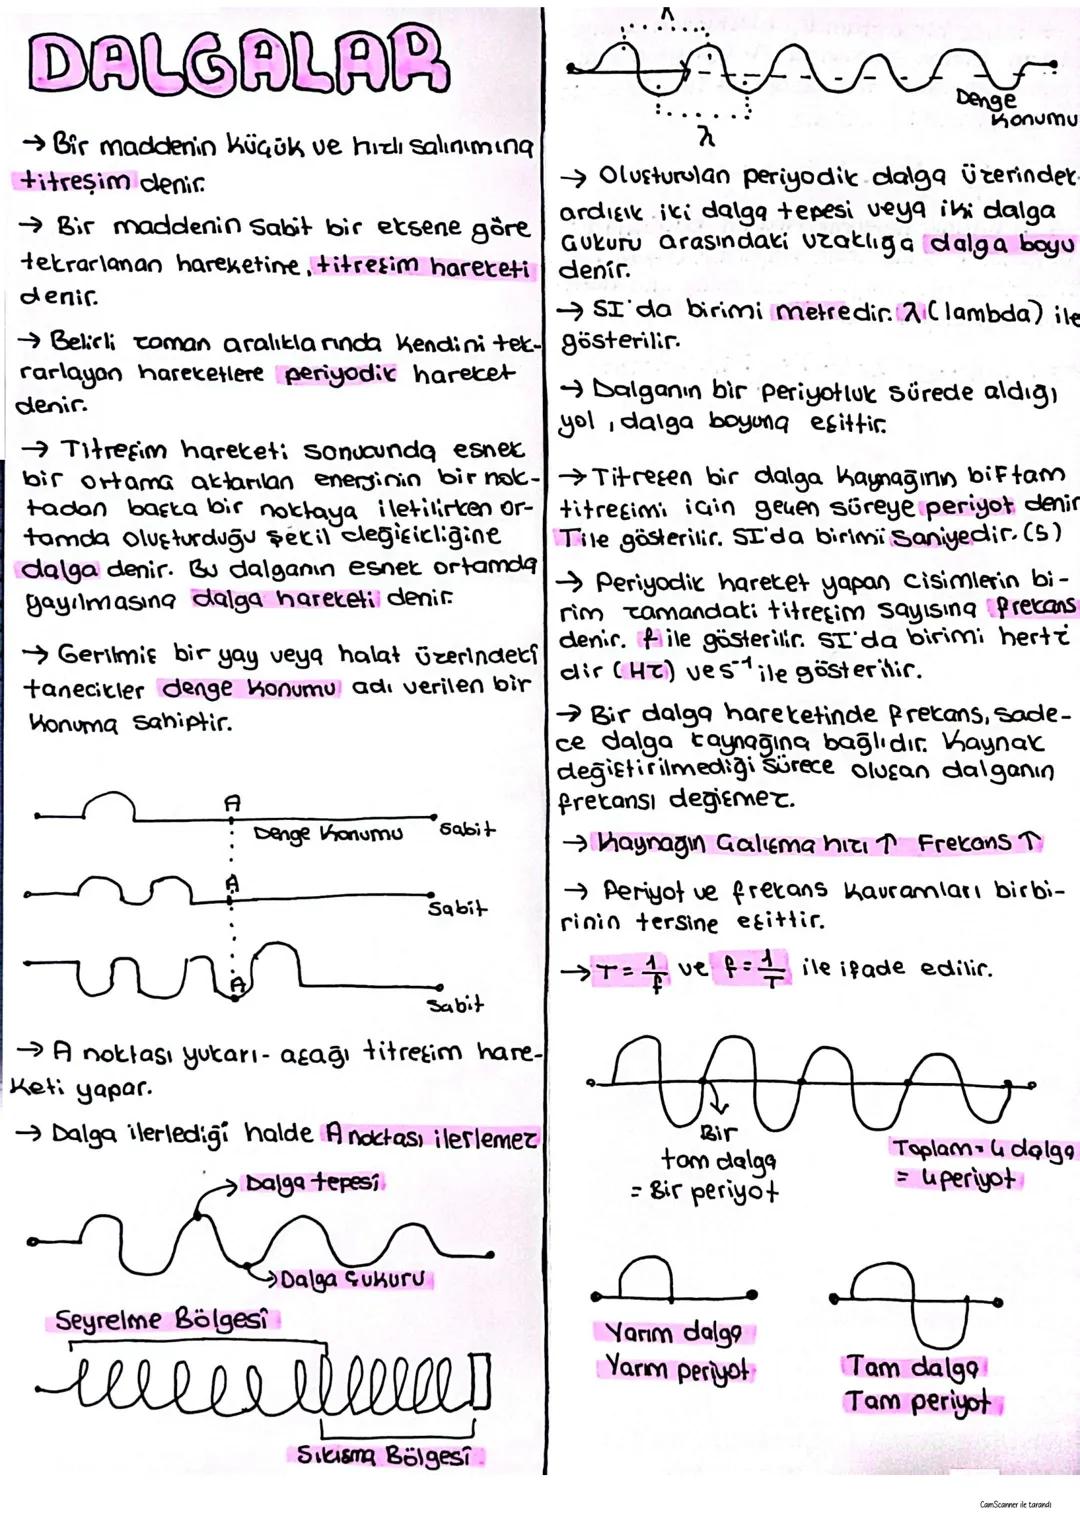 DALGALAR
→ Bir maddenin küçük ve hızlı salınımına
titreşim denir.
→ Bir maddenin sabit bir eksene göre
tekrarlanan hareketine, titreşim hareketi
denir.
→ Belirli zaman aralıklarında kendini tek-
rarlayan hareketlere periyodik hareket
denir.
→ Titreşim hareketi sonucunda esnek
bir ortama aktarılan enerjinin bir nok-
tadan başka bir noktaya iletilirken or-
tamda oluşturduğu şekil değişikliğine
dalga denir. Bu dalganın esnek ortamda
yayılmasına dalga hareketi denir.
→ Gerilmiş bir yay veya halat üzerindeki
tanecikler denge konumu adı verilen bir
konuma sahiptir.
A
Denge Konumu
Sabit
A
Sabit
A
Sabit
→ A noktası yukarı- aşağı titreşim hare-
keti yapar.
→ Dalga ilerlediği halde A noktası ilerlemez
Dalga tepesi
Dalga Çukuru
Seyrelme Bölgesi
Sıkışma Bölgesi
λ
λ
Denge
Konumu
→ Oluşturulan periyodik dalga üzerindek
ardışık iki dalga tepesi veya iki dalga
çukuru arasındaki uzaklığa dalga boyu
denir.
→ SI'da birimi metredir. λ (lambda) ile
gösterilir.
→ Dalganın bir periyotluk sürede aldığı
yol, dalga boyuna eşittir.
→ Titreşen bir dalga kaynağının bir tam
titreşimi için geçen süreye periyot denir
T ile gösterilir. SI'da birimi Saniyedir. (s)
→ Periyodik hareket yapan cisimlerin bi-
rim zamandaki titreşim sayısına frekans
denir. f ile gösterilir. SI'da birimi hertz
dir (Hz) ve s⁻¹ ile gösterilir.
→ Bir dalga hareketinde frekans, sade-
ce dalga kaynağına bağlıdır. Kaynak
değiştirilmediği sürece oluşan dalganın
frekansı değişmez.
→ Kaynağın Çalışma hızı ↑ Frekans ↑
→ Periyot ve frekans kavramları birbi-
rinin tersine eşittir.
→ T = 1/f ve f = 1/T ile ifade edilir.
Bir
tam dalga
= Bir periyot
Toplam = 4 dalga
= 4 periyot
Yarım dalga
Yarım periyot
Tam dalga
Tam periyot
CamScanner ile tarandı